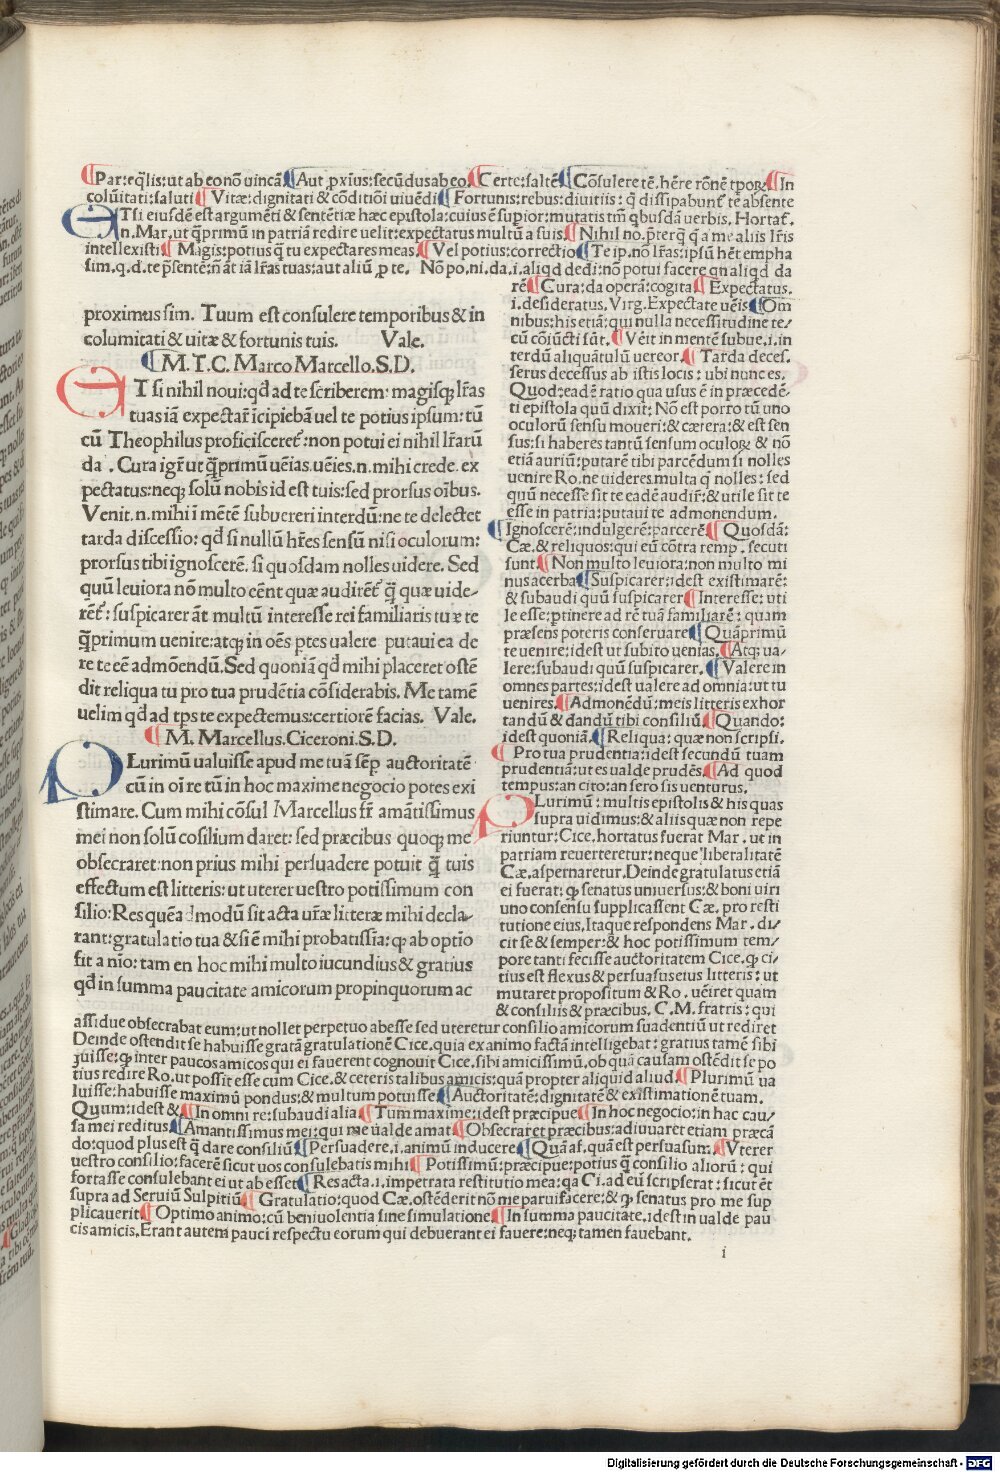 Par: eq̃lis: ut ab eo nō uincā. Aut ꝓxīus: secūdus ab eo. Certe: saltē. Cōsulere tē. hēre rōnē tꝑoꝝ. In
colūitati: saluti. Vitæ: dignitati & cōditiōi uiuēdi. Fortunis: rebus: diuitiis: q̄ dissipabunt᷑ te absente
ETsi eiusdē est argumēti & sentētiæ hæc epistola: cuius ē supior: mutatis tm̄ q̇busdā uerbis. Hortat᷑.
n. Mar. ut q̄primū in patriā redire uelit: expectatus multū a suis. Nihil no. p̃terq̄ q̄ a me aliis lr̄is
intellexisti. Magis: potius q̄ tu expectares meas. Vel potius: correctio. Te ip. nō lr̄as: ipsū hēt empha
sim. q. d. te p̃sentē: m̄ āt iā lr̄as tuas: aut aliū ꝓ te. Nō po. ni. da. i. aliqd dedi: nō potui facere qn aliqd da
rē. Cura: da operā: cogita. Expectatus.
i. desideratus. Virg. Expectate uēis. Om
nibus: his etiā: qui nulla necessitudine te/
cū cōiūcti sāt. Vēit in mentē subue. i. in
terdū aliquātulū uereor. Tarda deces.
serus decessus ab istis locis: ubi nunc es.
Quod: eadē ratio qua usus ē in præcedē-
ti epistola quū dixit: Nō est porro tū uno
oculorū sensu moueri: & cærera: & est sen
sus: si haberes tantū sensum oculoꝝ & nō
etiā auriū: putarē tibi parcēdum si nolles
uenire Ro. ne uideres multa q̄ nolles: sed
quū necesse sit te eadē audir̄: & utile sit te
esse in patria: putaui te admonendum.
Ignoscerē: indulgerē: parcerē. Quosdā:
Cæ. & reliquos: qui eū cōtra remp. secuti
sunt. Non multo leuiora: non multo mi
nus acerba. Suspicarer: idest existimarē:
& subaudi quū suspicarer. Interesse: uti
le esse: ptinere ad rē tuā familiarē: quam
præsens poteris conseruare. Quāprimū
te uenire: idest ut subito uenias. Atq; ua-
lere: subaudi quū suspicarer. Valere in
omnes partes: idest ualere ad omnia: ut tu
uenires. Admonēdū: meis litteris exhor
tandū & dandū tibi consiliū. Quando:
idest quoniā. Reliqua: quæ non scripsi.
Pro tua prudentia: idest secundū tuam
prudentiā: ut es ualde prudēs. Ad quod
tempus: an cito: an sero sis uenturus.
PLurimū: multis epistolis & his quas
supra uidimus: & aliis quæ non repe
riuntur: Cice. hortatus fuerat Mar. ut in
patriam reuerteretur: neque liberalitatē
Cæ. aspernaretur. Deinde gratulatus etiā
ei fuerat: ꝙ senatus uniuersus: & boni uiri
uno consensu supplicassent Cæ. pro resti
tutione eius. Itaque respondens Mar. di/
cit se & semper: & hoc potissimum tem/
pore tanti fecisse auctoritatem Cice. ꝙ ci/
tius est flexus & persuasus eius litteris: ut
mutaret propositum & Ro. uēiret quam
& consiliis & præcibus. C. M. fratris: qui
proximus sim. Tuum est consulere temporibus & in
columitati & uitæ & fortunis tuis. Vale.
M. T. C. Marco Marcello. S. D.
ETsi nihil noui: qd̄ ad te scriberem: magisq; lr̄as
tuas iā expectar̄ īcipiebā uel te potius ipsum: tū
cū Theophilus proficisceret᷑: non potui ei nihil lr̄arū
da . Cura igr̄ ut q̄primū uēias. uēies. n. mihi crede. ex
pectatus: neq; solū nobis id est tuis: sed prorsus oībus.
Venit. n. mihi ī mētē subuereri interdū: ne te delectet
tarda discessio: qd̄ si nullū hr̄es sensū nisi oculorum:
prorsus tibi ignoscerē. si quosdam nolles uidere. Sed
quū leuiora nō multo cēnt quæ audirēt᷑ q̄ quæ uide-
rēt᷑: suspicarer āt multū interesse rei familiaris tuæ te
q̄primum uenire: atq; in oēs ptes ualere putaui ea de
re te eē admōendū. Sed quoniā qd̄ mihi placeret ostē
dit reliqua tu pro tua prudētia cōsiderabis. Me tamē
uelim qd̄ ad tps te expectemus: certiorē facias. Vale.
M. Marcellus. Ciceroni. S. D.
PLurimū ualuisse apud me tuā sēꝑ auctoritatē
cū in oī re tū in hoc maxime negocio potes exi
stimare. Cum mihi cōsul Marcellus fr̄ amātissimus
mei non solū cosilium daret: sed præcibus quoq; me
obsecraret: non prius mihi persuadere potuit q̄ tuis
effectum est litteris: ut uterer uestro potissimum con
silio: Res quēadmodū sit acta ur̄æ litteræ mihi decla-
rant: gratulatio tua & si ē mihi probatissīa: ꝙ ab optīo
fit a nīo: tam en hoc mihi multo iucundius & gratius
qd̄ in summa paucitate amicorum propinquorum ac
assidue obsecrabat eum: ut nollet perpetuo abesse sed uteretur consilio amicorum suadentiū ut rediret
Deinde ostendit se habuisse gratā gratulationē Cice. quia ex animo factā intelligebat: gratius tamē sibi
fuisse: ꝙ inter paucos amicos qui ei fauerent cognouit Cice. sibi amicissimū. ob quā causam ostēdit se po
tius redire Ro. ut possit esse cum Cice. & ceteris talibus amicis: quā propter aliquid aliud. Plurimū ua
luisse: habuisse maximū pondus: & multum potuisse. Auctoritatē: dignitatē & existimationē tuam.
Quum: idest &. In omni re: subaudi alia. Tum maxime: idest præcipue. In hoc negocio: in hac cau/
sa mei reditus. Amantissimus mei: qui me ualde amat. Obsecraret præcibus: adiuuaret etiam præcā
do: quod plus est q̄ dare consiliū. Persuadere. i. animū inducere. Quā as. quā est persuasum. Vterer
uestro consilio: facerē sicut uos consulebatis mihi. Potissimū: præcipue: potius q̄ consilio aliorū: qui
fortasse consulebant ei ut abesset. Res acta. i. impetrata restitutio mea: qa Ci. ad eū scripserat: sicut ēt
supra ad Seruiū Sulpitiū. Gratulatio: quod Cæ. ostēderit nō me parui facere: & ꝙ senatus pro me sup
plicauerit. Optimo animo: cū beniuolentia sine simulatione. In summa paucitate. idest in ualde pau
cis amicis. Erant autem pauci respectu eorum qui debuerant ei fauere: neq; tamen fauebant.
i
Digitalisierung gefördert durch die Deutsche Forschungsgemeinschaft - DFG